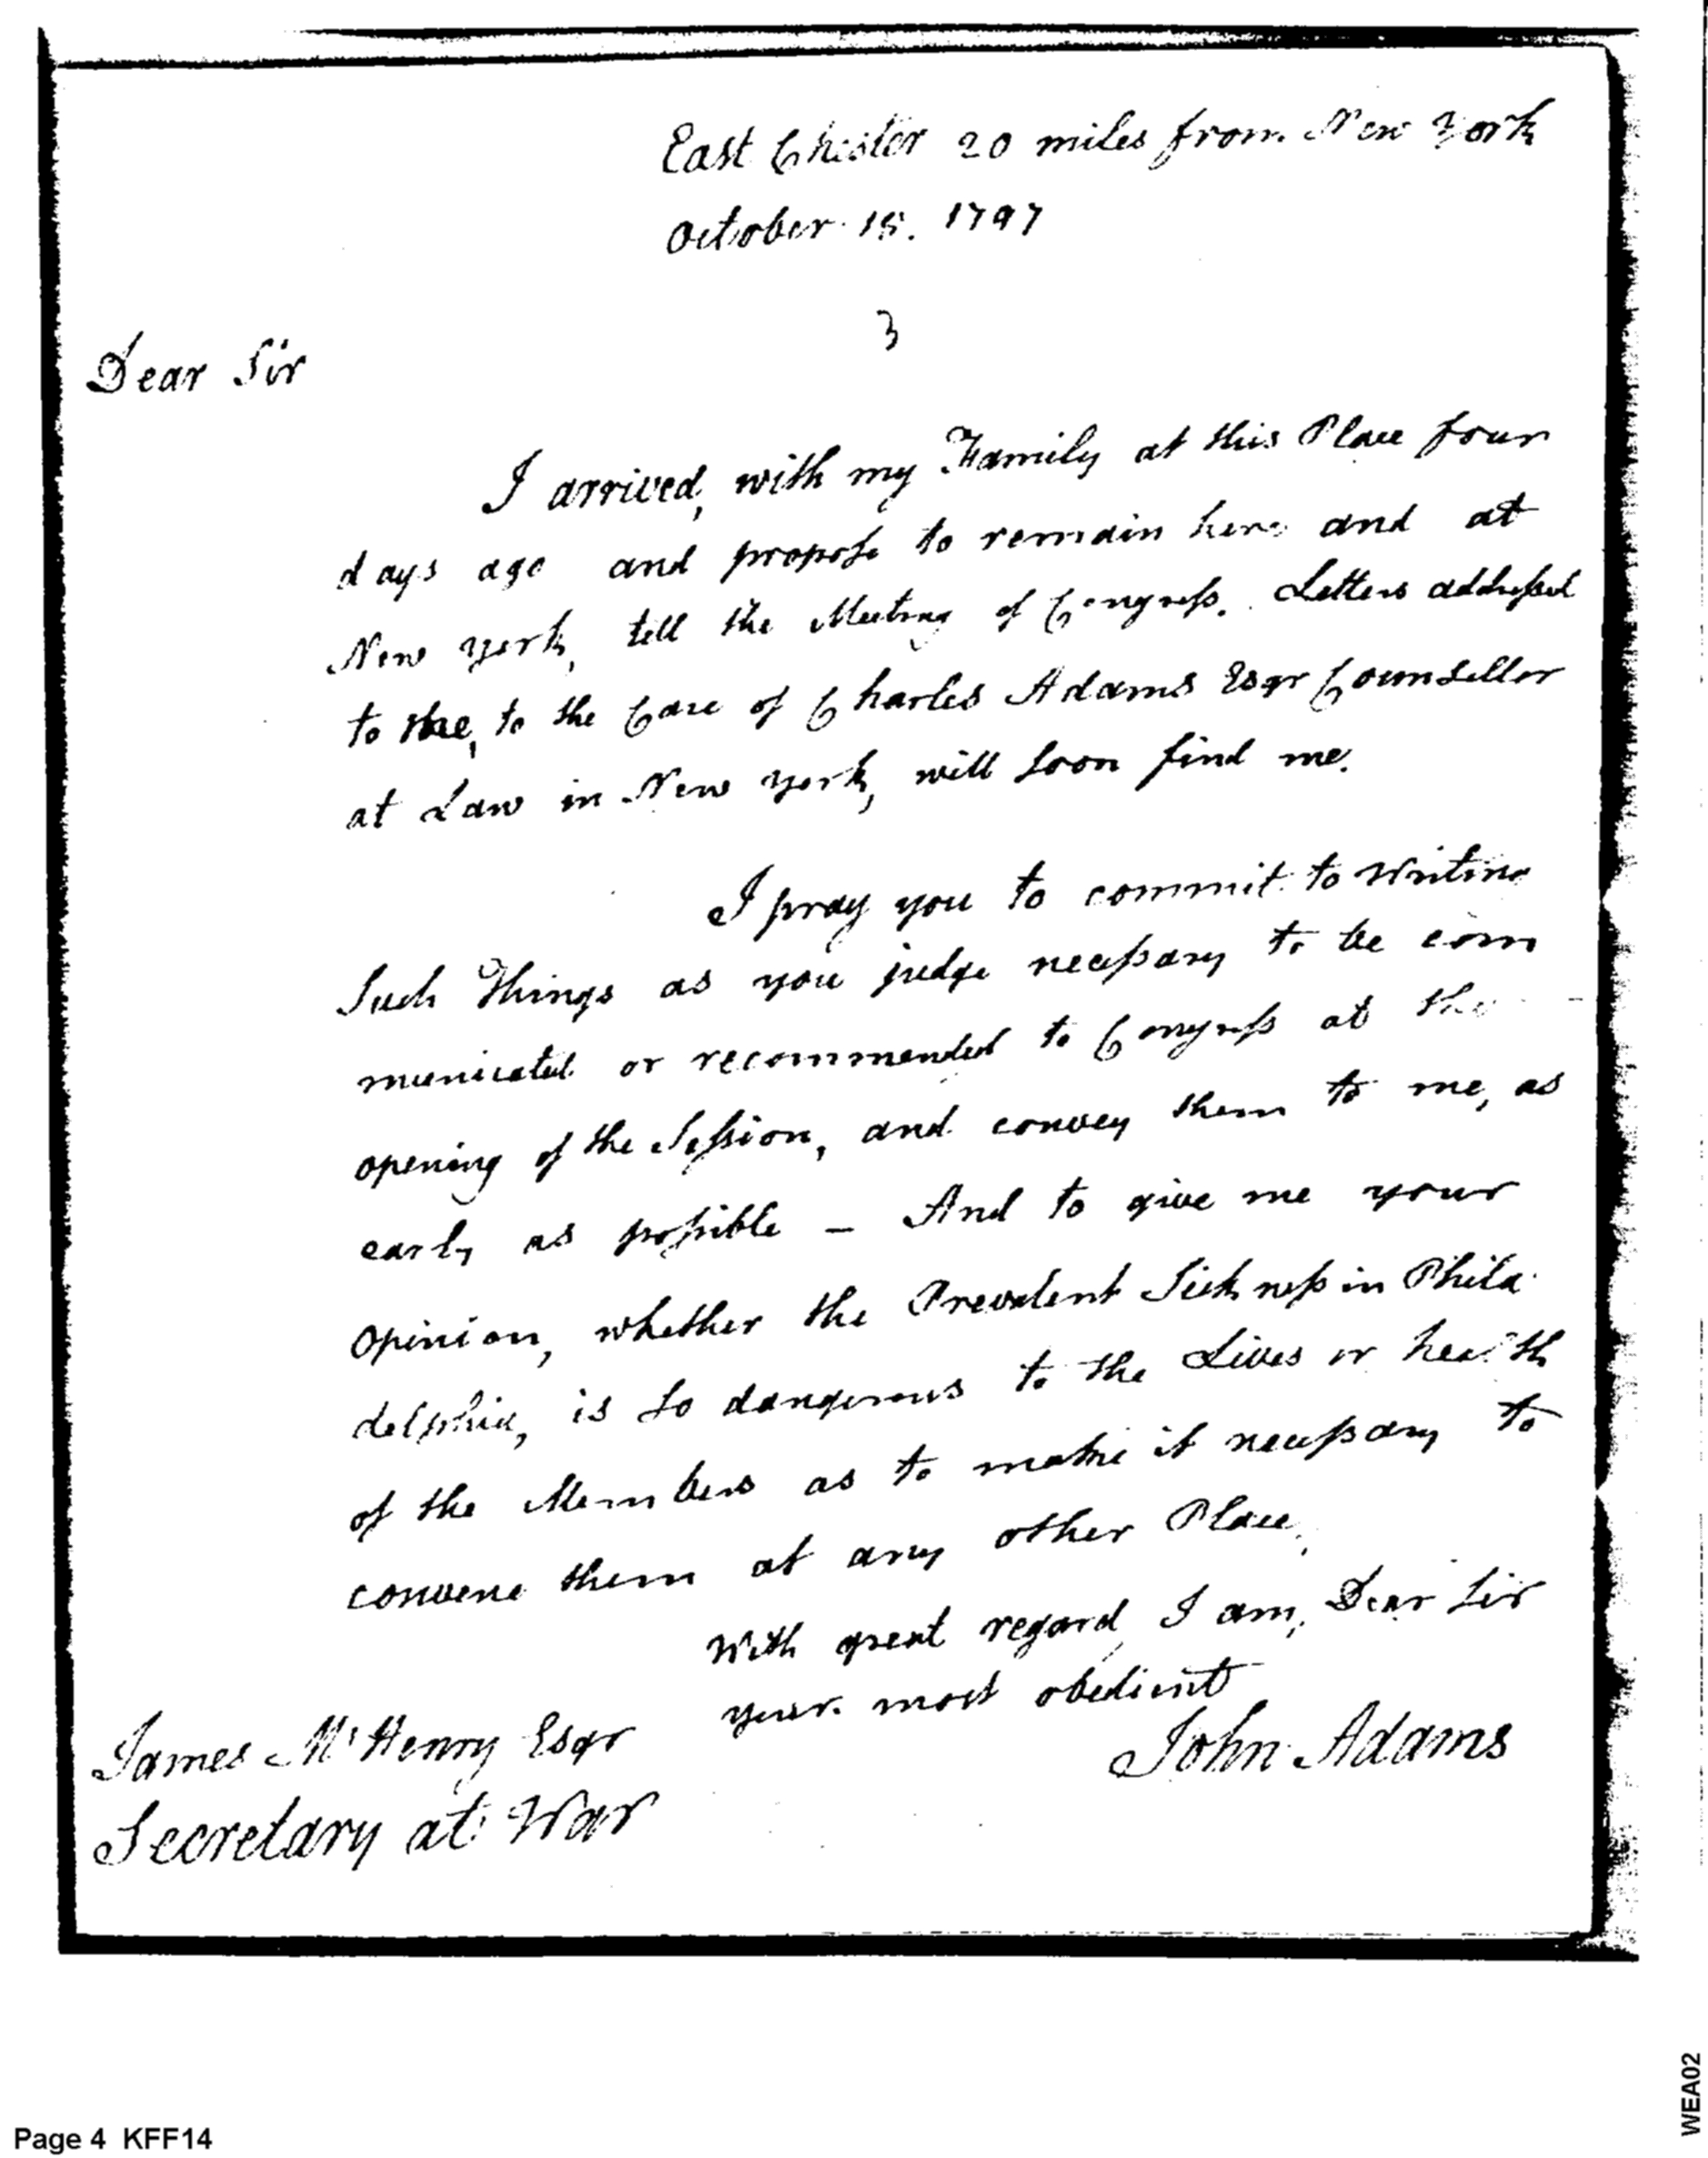 East Chester 20 miles from New York
October 15. 1797
3
Dear Sir
I arrived, with my Family at this Place four
days ago and propose to remain here and at
New york, till the Meeting of Congress. Letters addressed
to me, to the Care of Charles Adams Esqr Counsellor
at Law in New york, will soon find me.
I pray you to commit to writing
Such Things as you judge necessary to be com
municated or recommended to Congress at the
opening of the Session, and convey them to me, as
early as possible – And to give me your
opinion, whether the Prevalent Sickness in Phila
delphia, is so dangerous to the Lives or health
of the Members as to make it necessary to
convene them at any other Place.
With great regard, I am, Dear Sir
your most obedient
John Adams
James McHenry Esqr
Secretary at War
Page 4 KFF14
WEA02